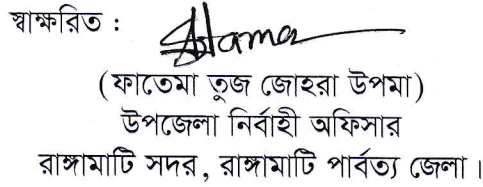 স্বাক্ষরিত :
(ফাতেমা তুজ জোহরা উপমা)
উপজেলা নির্বাহী অফিসার
রাঙ্গামাটি সদর, রাঙ্গামাটি পার্বত্য জেলা।